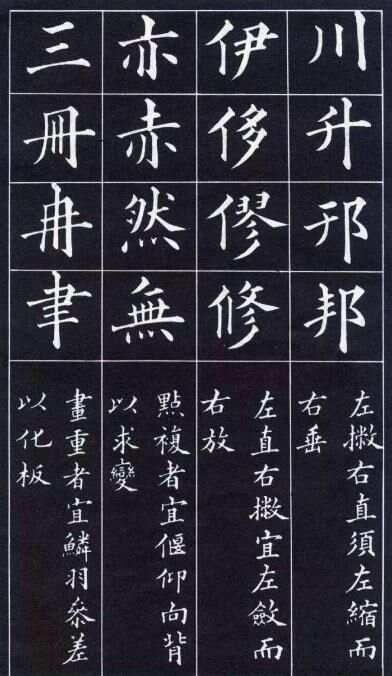 川
升
邦
左撇右直須左縮而
右垂
伊
侈
僇
修
左直右撇宜左斂而
右放
亦
赤
然
無
點複者宜偃仰向背
以求變
三
冊
聿
畫重者宜鱗羽參差
以化板